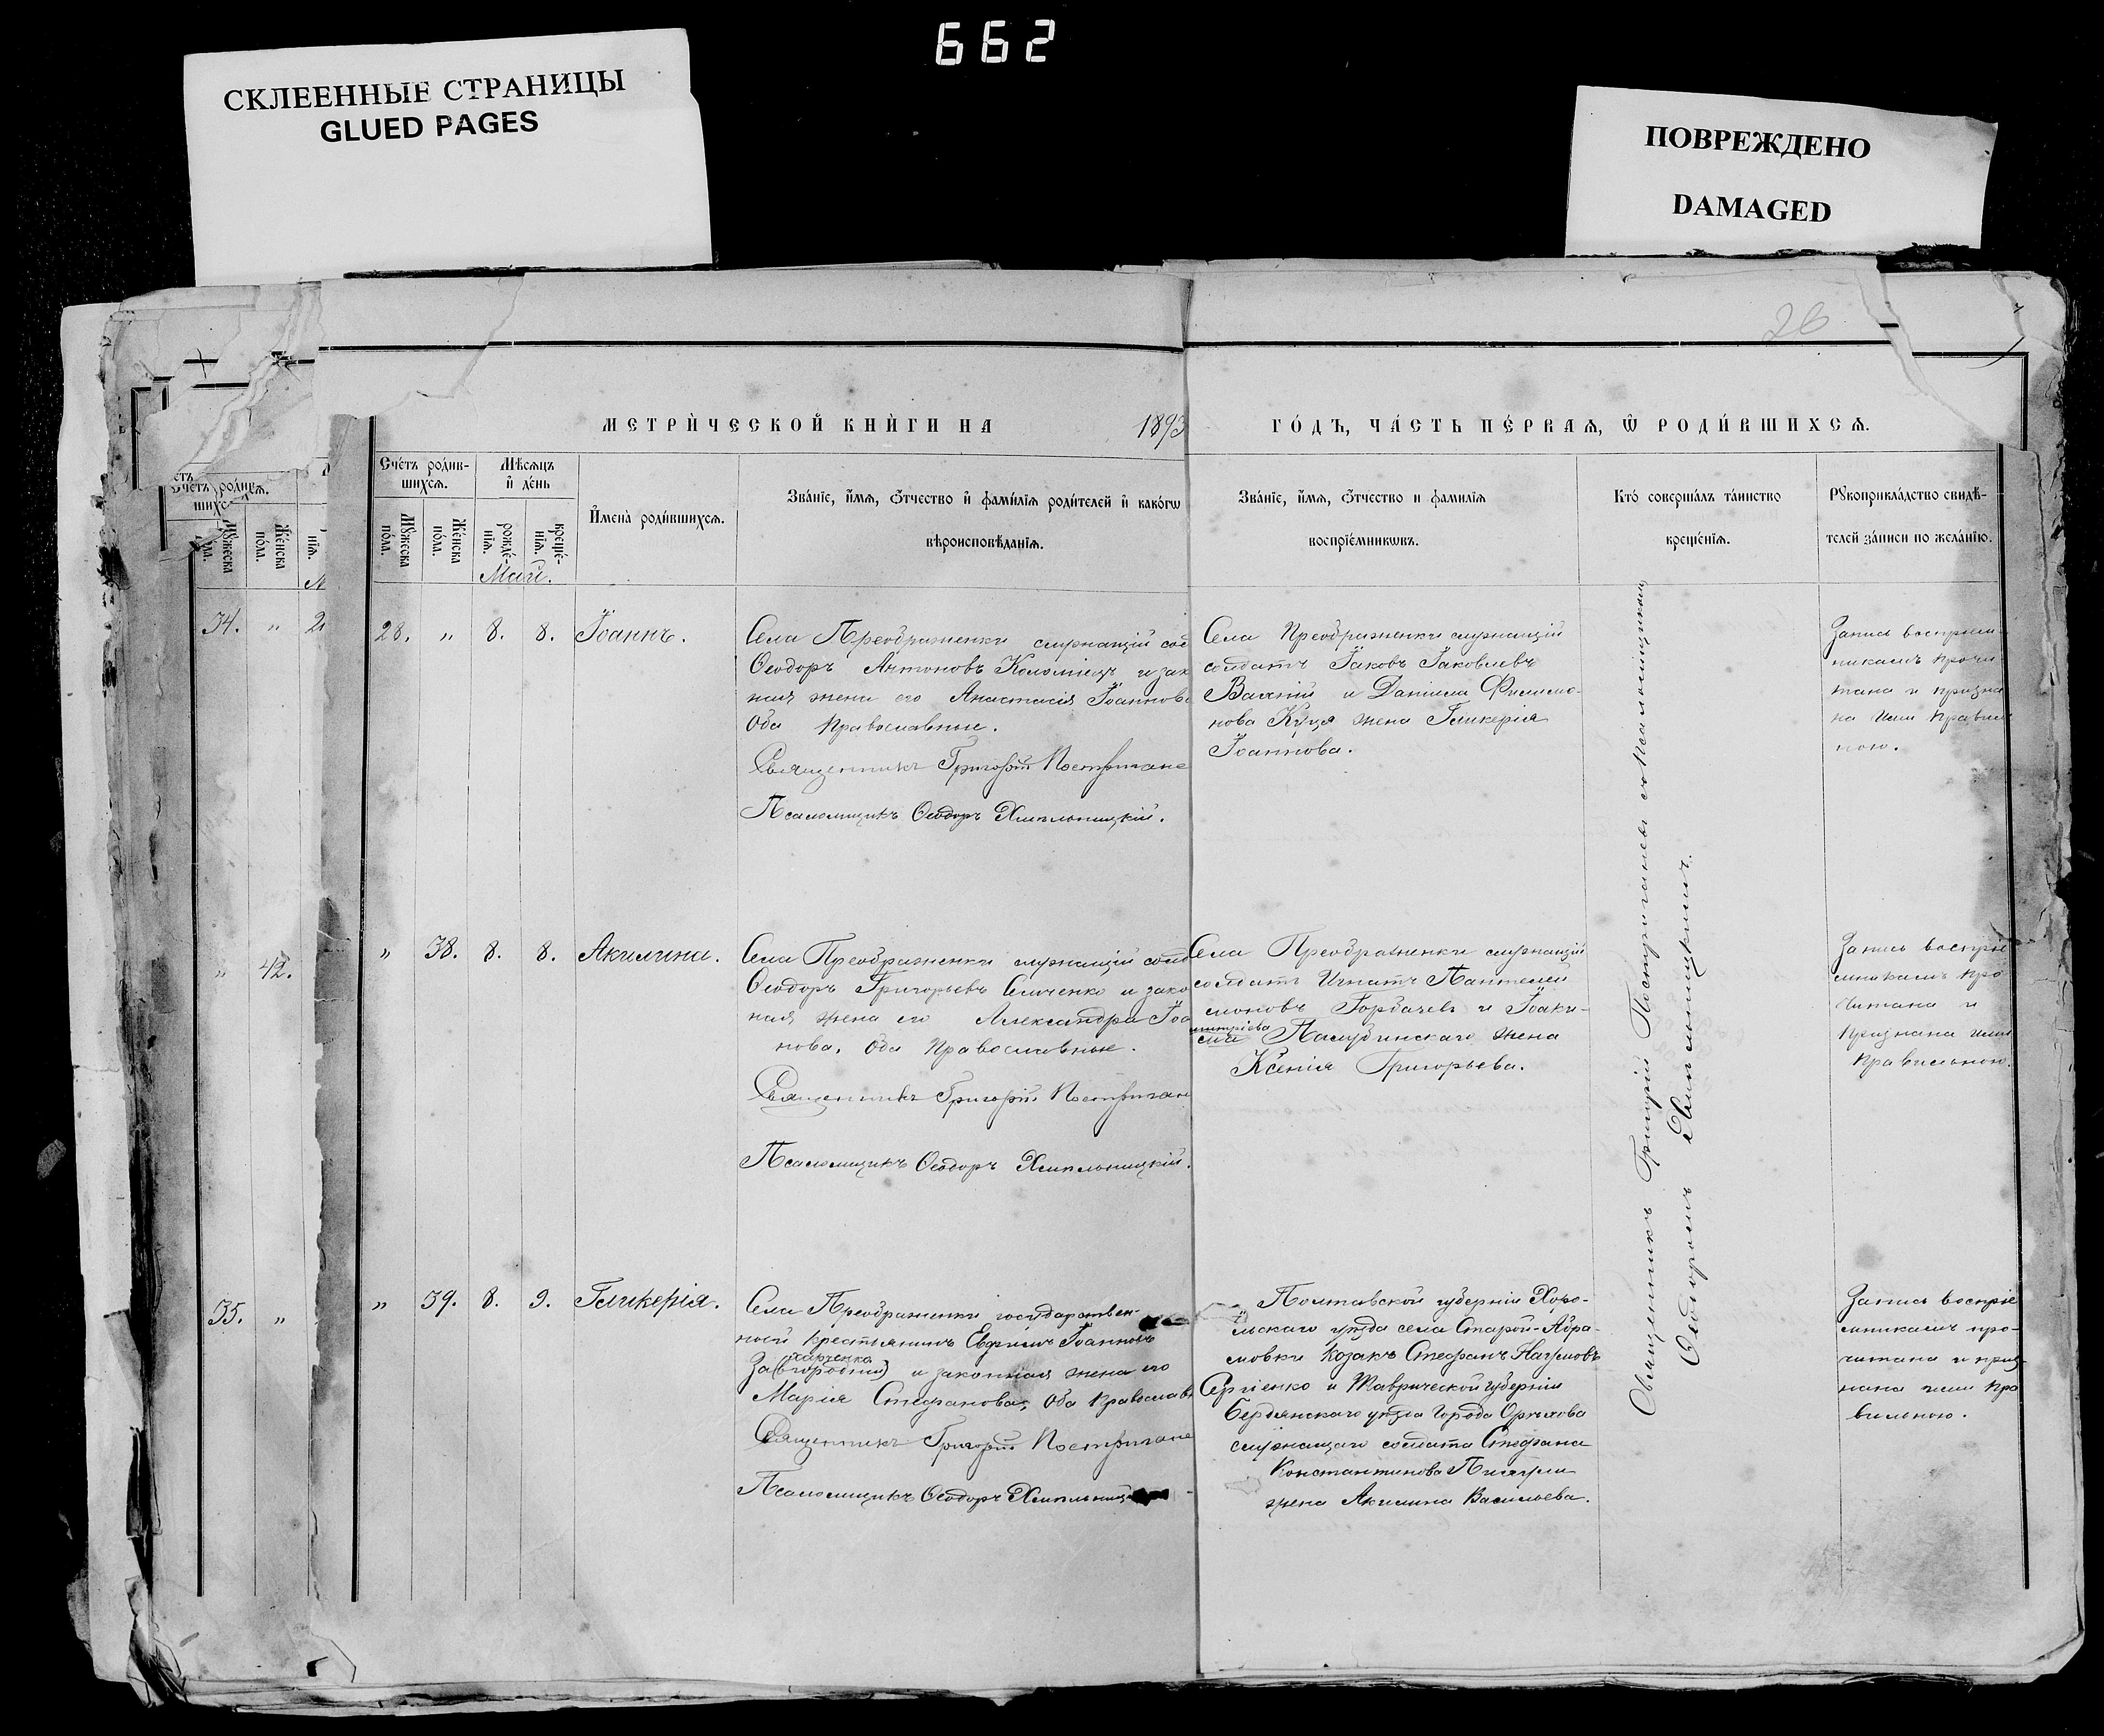 662
СКЛЕЕННЫЕ СТРАНИЦЫ
GLUED PAGES
ПОВРЕЖДЕНО
DAMAGED
26
МЕТРИ́ЧЕСКОЙ КНИ́ГИ НА 1893 ГО́ДЪ, ЧА́СТЬ ПЕ́РВАѦ, Ѿ РОДИ́ВШИХСѦ.
Счётъ роди́в-
шихсѧ.
Мꙋ́жеска по́ла.
Же́нска по́ла.
Мѣ́сѧцъ
и҆ де́нь
рожде́-
нїѧ.
креще́-
нїѧ.
Май.
И҆мена̀ роди́вшихсѧ.
Зва́нїе, и҆́мѧ, ѻ҆́тчество и҆ фами́лїѧ роди́телей и҆ како́гѡ
вѣроисповѣ́данїѧ.
Зва́нїе, и҆́мѧ, ѻ҆́тчество и фамилїѧ
воспрїе́мникѡвъ.
Кто́ соверша́лъ та́инство
креще́нїѧ.
Рꙋкоприкла́дство свидѣ́-
телей за́писи по жела́нїю.
34. „ 2
28. „ 8. 8. Іоаннъ.
Села Преображенки служащій сол
Ѳеодоръ Антоновъ Коломіецъ и зак
ная жена его Анастасія Іоаннов
Оба православные.
Священникъ Григорій Постригане
Псаломщикъ Ѳеодоръ Хмѣльницкій.
Села Преображенки служащій
солдатъ Іаковъ Іаковлевъ
и Даніила Филимо-
нова Куця жена Гликерія
Іоаннова.
Запись воспріем-
никамъ прочи
тана и призна
на ими правиль
ною.
„ 42.
„ 38. 8. 8. Акилина.
Села Преображенки служащій солд
Ѳеодоръ Григорьевъ и зако
ная жена его Александра Іоа
нова. Оба православные.
Священникъ Григорій Постриган
Псаломщикъ Ѳеодоръ Хмѣльницкій.
Села Преображенки служащій
солдатъ Игнатъ Пантелей
моновъ Горбачевъ и Іоаки-
ма Дмитріева жена
Ксенія Григорьева.
Запись воспріе
мникамъ про
читана и
признана ими
правильною.
35. „
„ 39. 8. 9. Гликерія.
Села Преображенки государствен-
ный крестьянинъ Евфимъ Іоанновъ
Харченко
За(вгородній) и законная жена его
Марія Стефанова, Оба православн
Священникъ Григорій Постригане
Псаломщикъ Ѳеодоръ Хмѣльниц
Полтавской губерніи Хоро-
льскаго уѣзда села Старой-Абра-
мовки козакъ Стефанъ Наумовъ
Сергіенко и Таврической губерніи
Бердянскаго уѣзда города Орѣхова
служащаго солдата Стефана
Константинова
жена Акилина Васильева.
Запись воспріе
мникамъ про-
читана и приз-
нана ими пра
вильною.
Священникъ Григорій Постриганевъ съ псаломщикомъ
Ѳеодоромъ Хмѣльницкимъ.